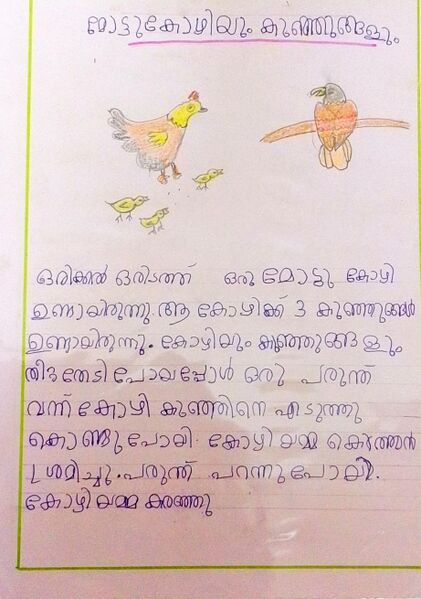 മോട്ടുകോഴിയും കുഞ്ഞുങ്ങളും
ഒരിക്കൽ ഒരിടത്ത് ഒരു മോട്ടു കോഴി
ഉണ്ടായിരുന്നു. ആ കോഴിക്ക് 3 കുഞ്ഞുങ്ങൾ
ഉണ്ടായിരുന്നു. കോഴിയും കുഞ്ഞുങ്ങളും
തീറ്റതേടി പോയപ്പോൾ ഒരു പരുന്ത്
വന്ന് കോഴി കുഞ്ഞിനെ എടുത്തു
കൊണ്ടുപോയി. കോഴിയമ്മ കൊത്താൻ
ശ്രമിച്ചു. പരുന്ത് പറന്നുപോയി.
കോഴിയമ്മ കരഞ്ഞു